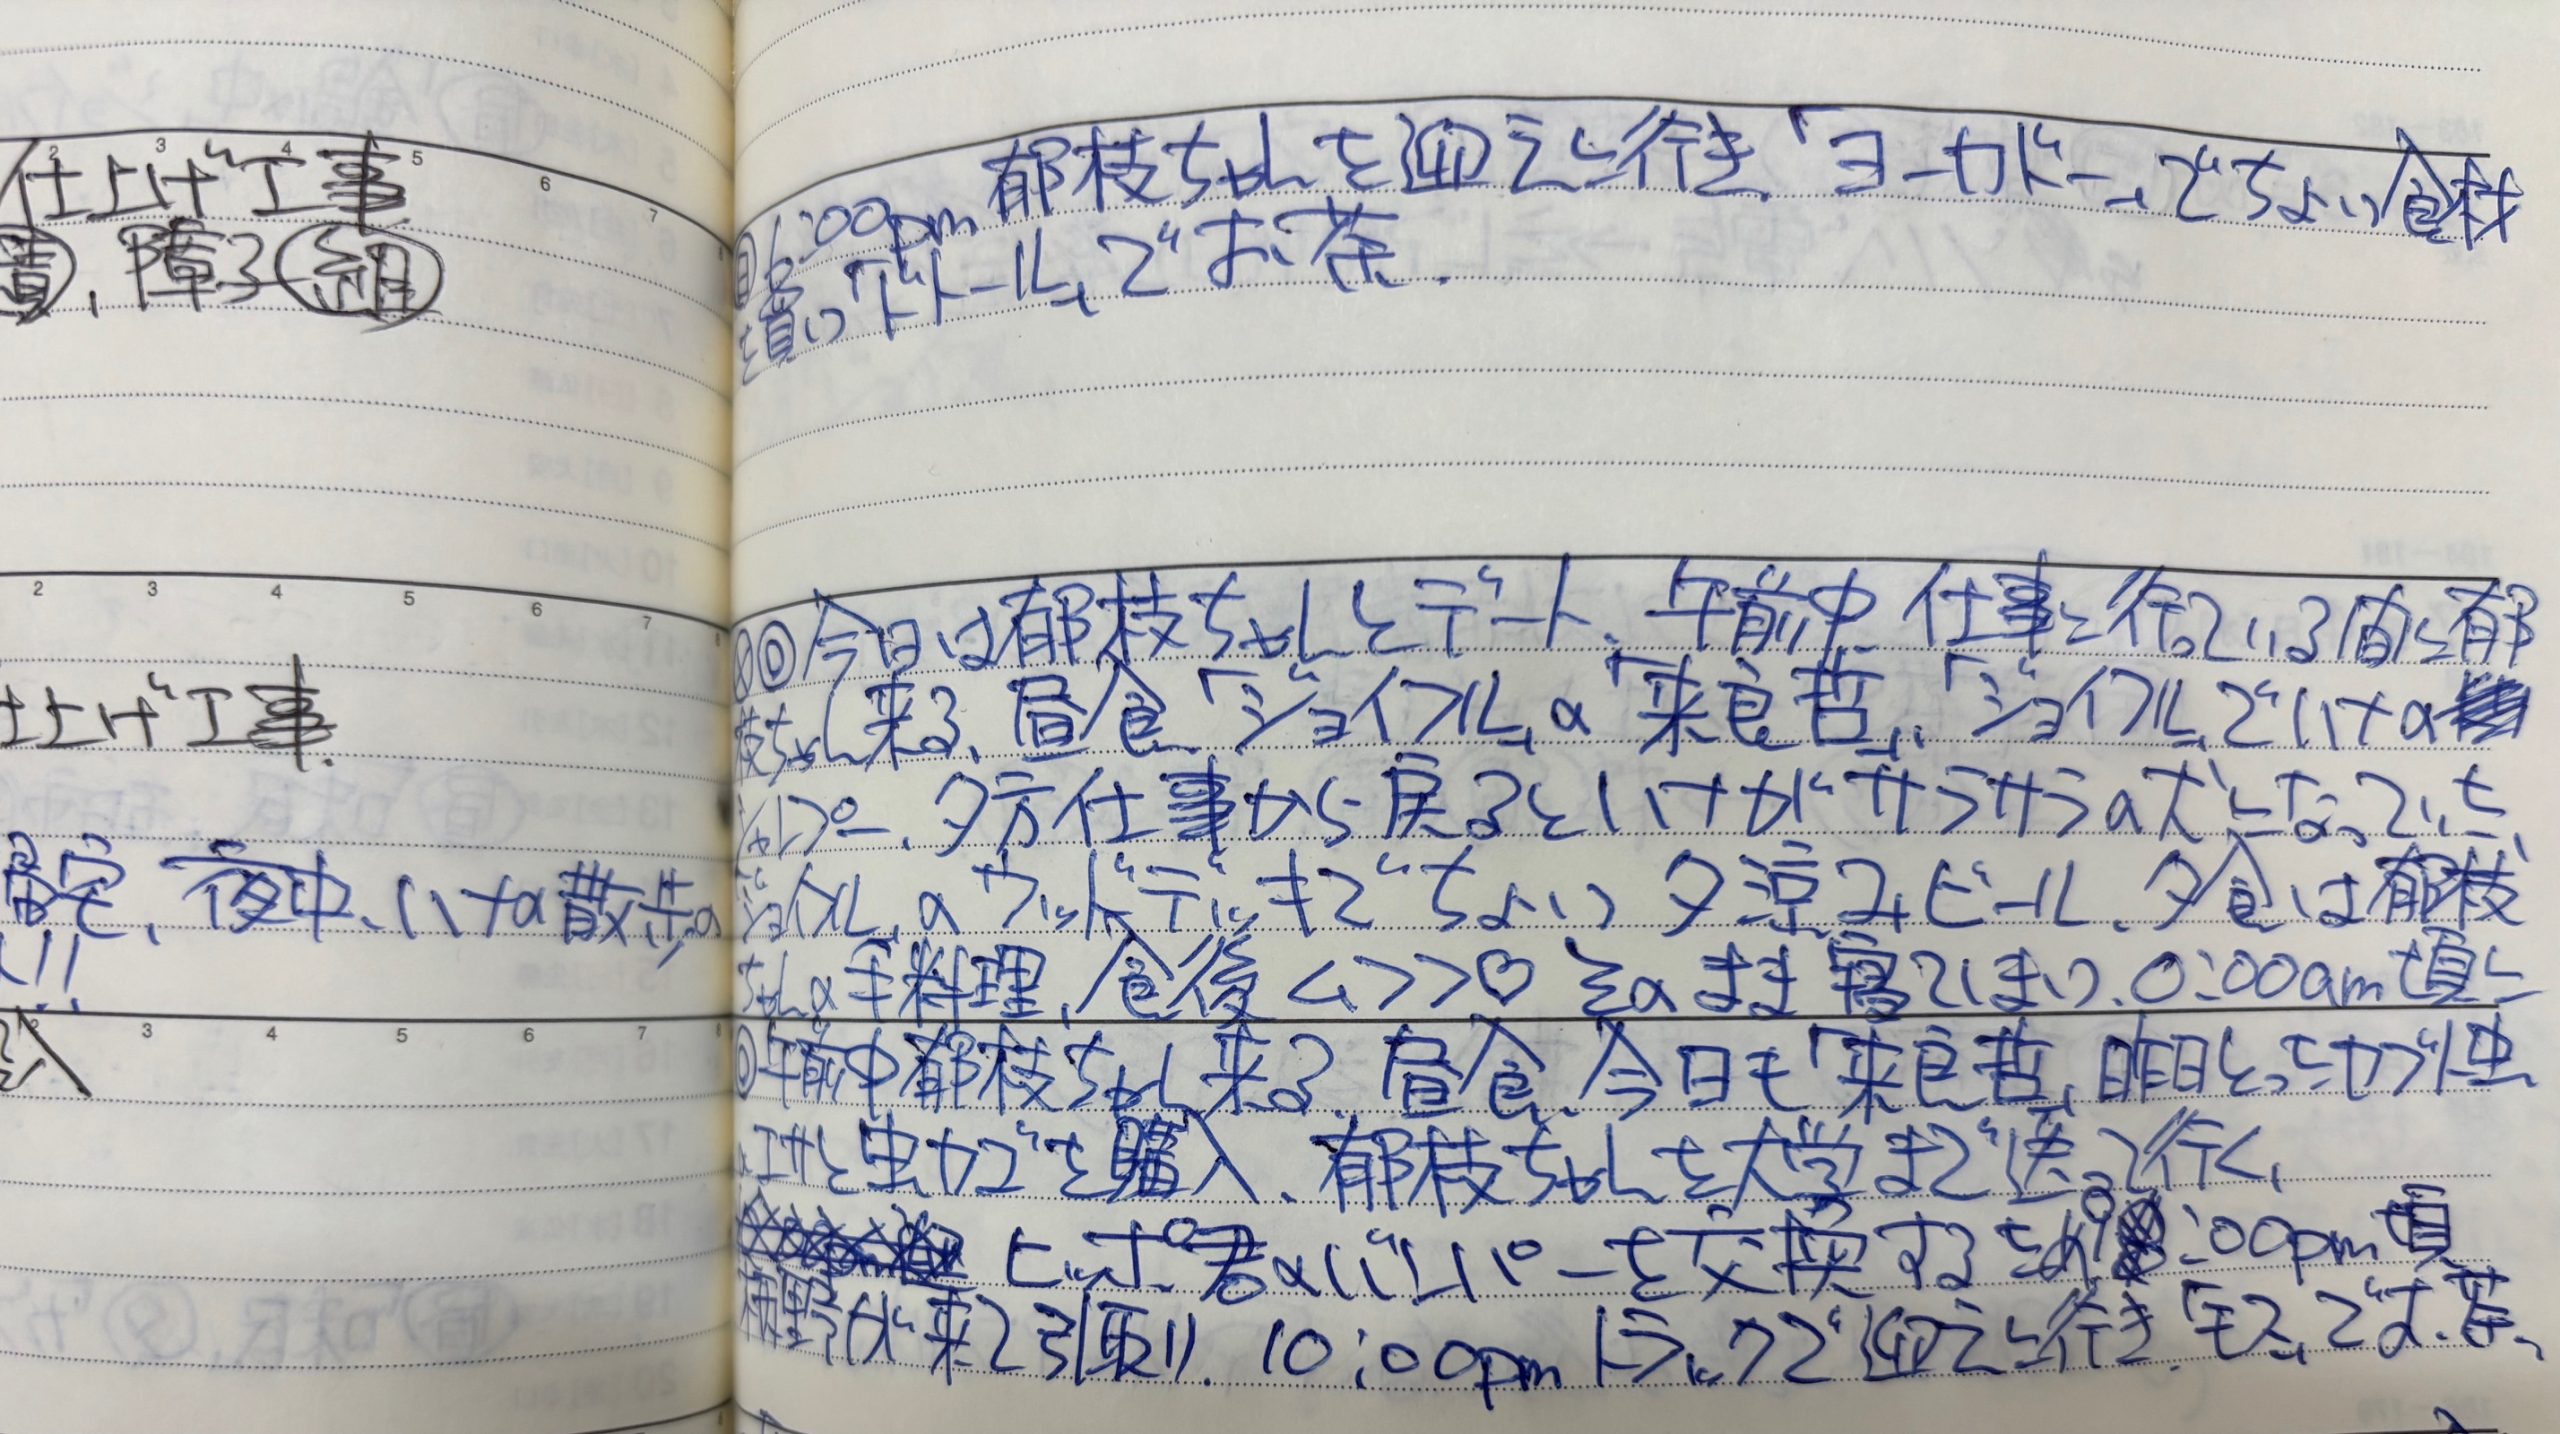 仕上げ工事
障子㊞組
仕上げ工事.
留宅、夜中、いナの散歩の
自 6:00pm 郁枝ちゃんを迎えに行き、「ヨーカドー」でちょい食材
を買い「ドトール」でお茶.
◎今日は郁枝ちゃんとデート、午前中、仕事に行っている間に郁
枝ちゃん来る、昼食「ジョイフル」の「来良哲」、「ジョイフル」でいナの
シャンプー、夕方仕事から戻るといナがサラサラの犬になっていた、
ジョイフル」のウッドデッキでちょい夕涼みビール、夕食は郁枝
ちゃんの手料理、食後<>>♡そのまま寝てしまい、0:00am頃に
◎午前中郁枝ちゃん来る、昼食、今日も「来良哲」、昨日とったカブト虫
のエサと虫カゴを購入、郁枝ちゃんを大学まで送って行く、
ヒッポ君のバンパーを交換するため9:00pm頃
柄野が来て引取り、10:00pmトラックで迎えに行き、「モス」でお茶、
2 3 4 5 6 7 8
2 3 4 5 6 7 8
2 3 4 5 6 7 8